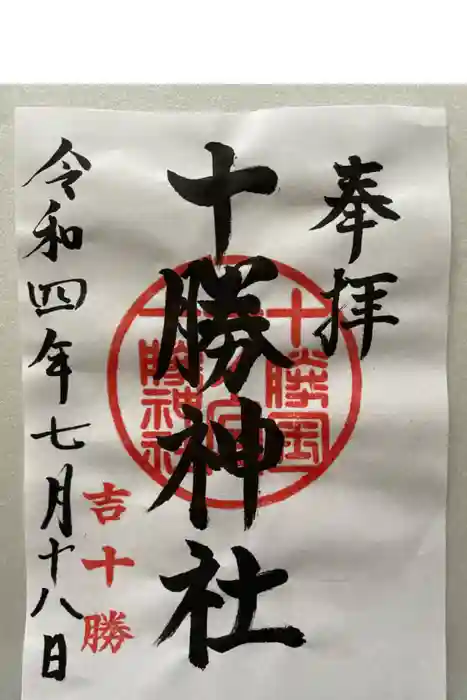 奉拝
十勝神社
十勝国
十勝神社
吉十勝
令和四年七月十八日